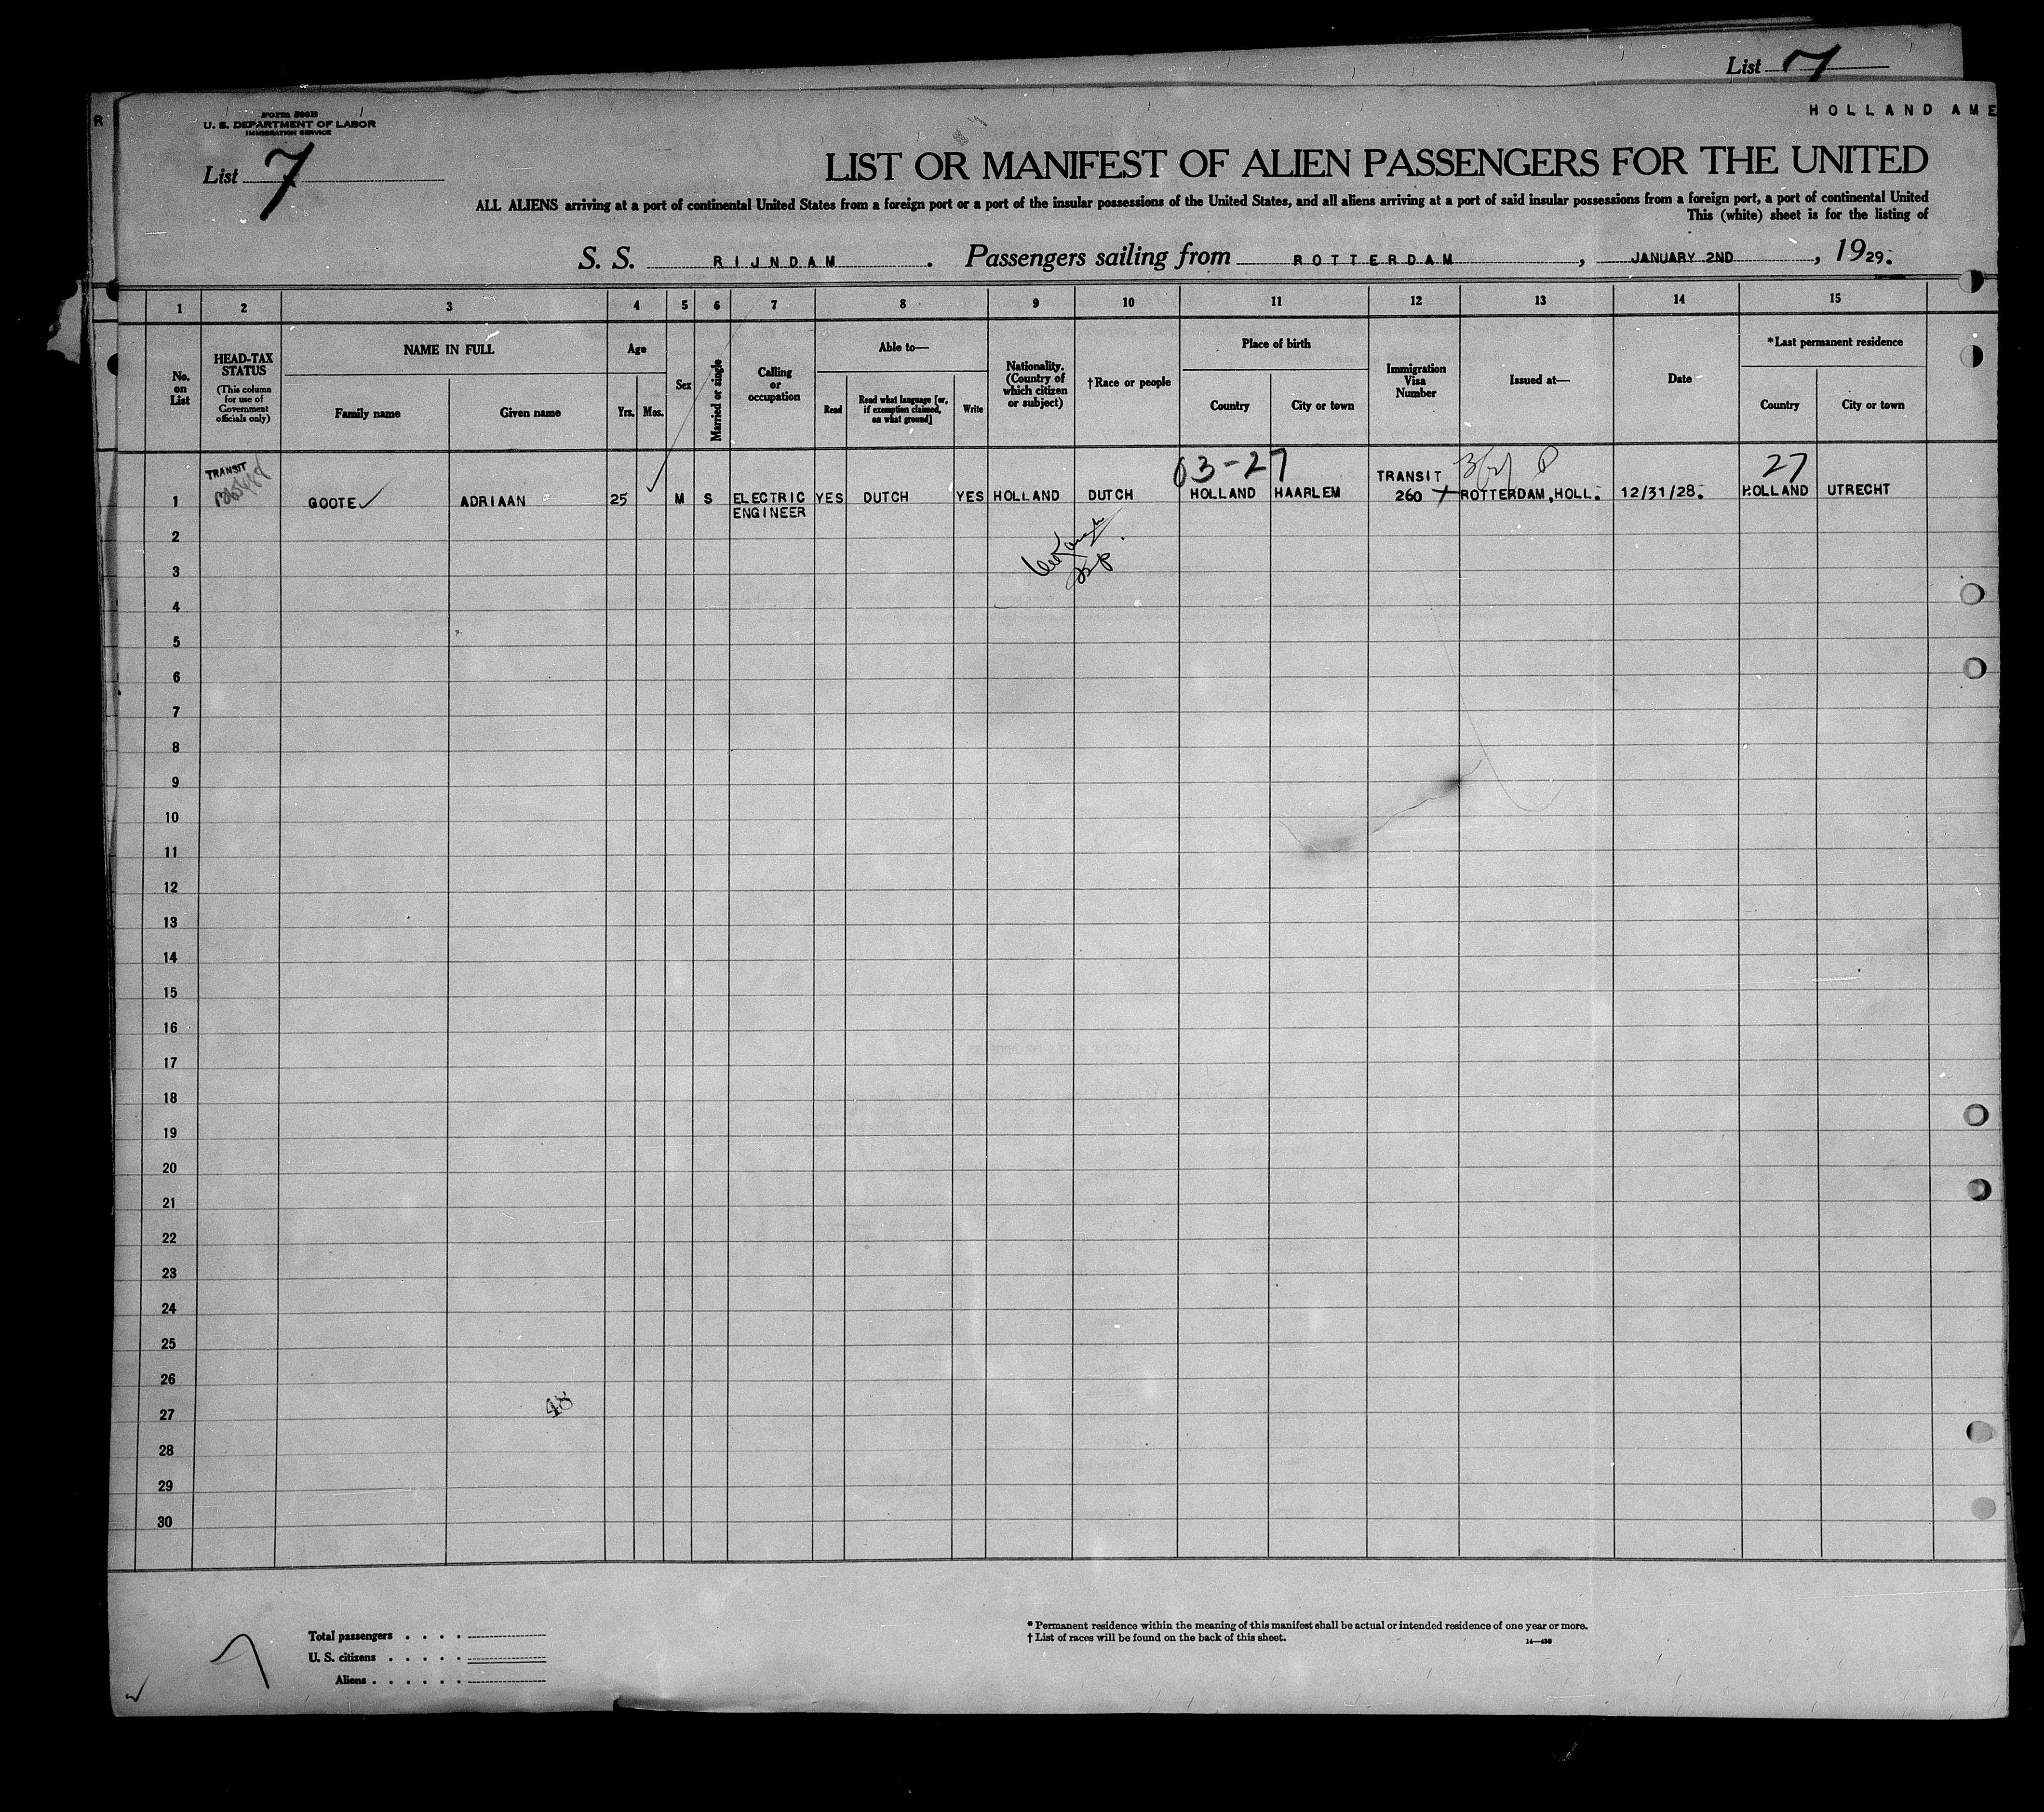 List 7
R
HOLLAND AME
Form 500B
U. S. DEPARTMENT OF LABOR
IMMIGRATION SERVICE
List 7
LIST OR MANIFEST OF ALIEN PASSENGERS FOR THE UNITED
ALL ALIENS arriving at a port of continental United States from a foreign port or a port of the insular possessions of the United States, and all aliens arriving at a port of said insular possessions from a foreign port, a port of continental United
This (white) sheet is for the listing of
S. S. RIJNDAM. Passengers sailing from ROTTERDAM, JANUARY 2ND, 1929.
1 2 3 4 5 6 7 8 9 10 11 12 13 14 15
No. on List
HEAD-TAX STATUS
(This column for use of Government officials only)
NAME IN FULL
Family name
Given name
Age
Yrs.
Mos.
Sex
Married or single
Calling or occupation
Able to—
Read
Read what language [or, if exemption claimed, on what ground]
Write
Nationality. (Country of which citizen or subject)
†Race or people
Place of birth
Country
City or town
Immigration Visa Number
Issued at—
Date
*Last permanent residence
Country
City or town
03-27
27
TRANSIT
TRANSIT
1 GOOTE ADRIAAN 25 M S ELECTRIC YES DUTCH YES HOLLAND DUTCH HOLLAND HAARLEM 260 ROTTERDAM, HOLL. 12/31/28. HOLLAND UTRECHT
ENGINEER
2
3
4
5
6
7
8
9
10
11
12
13
14
15
16
17
18
19
20
21
22
23
24
25
26
27 48
28
29
30
7
Total passengers . . . .
U. S. citizens . . . . .
Aliens . . . . . .
* Permanent residence within the meaning of this manifest shall be actual or intended residence of one year or more.
† List of races will be found on the back of this sheet.
14—436